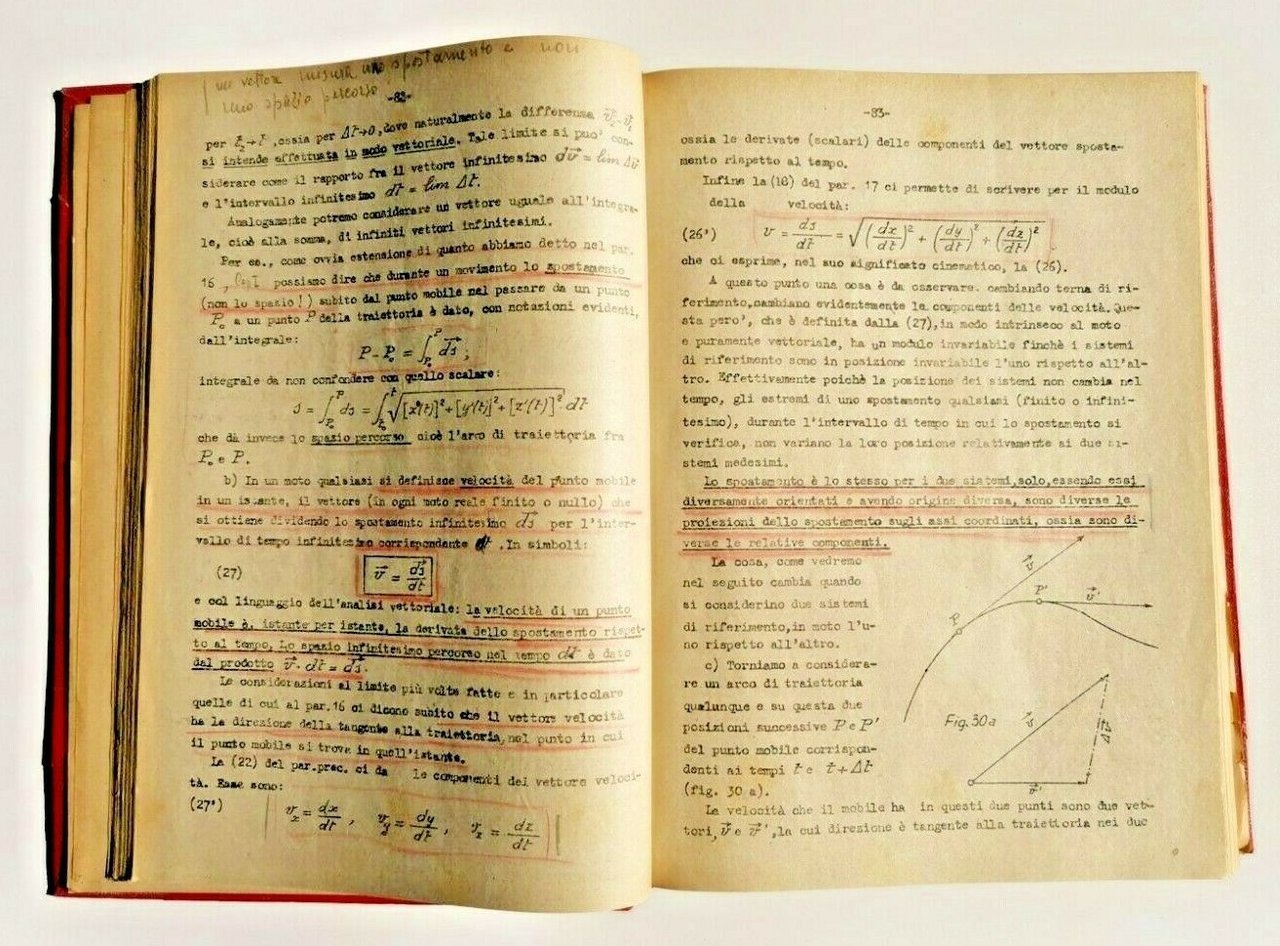 un vettore misura uno spostamento e non
uno spazio percorso
-82-
per t₂→t, ossia per Δt→0, dove naturalmente la differenza
si intende effettuata in modo vettoriale. Tale limite si puo' con-
siderare come il rapporto fra il vettore infinitesimo dv⃗ = lim Δv⃗
e l'intervallo infinitesimo dt = lim Δt.
Analogamente potremo considerare un vettore uguale all'integra-
le, cioè alla somma, di infiniti vettori infinitesimi.
Per es., come ovvia estensione di quanto abbiamo detto nel par.
16, possiamo dire che durante un movimento lo spostamento
(non lo spazio!) subito dal punto mobile nel passare da un punto
P₀ a un punto P della traiettoria è dato, con notazioni evidenti,
dall'integrale:
P - P₀ = ∫_P₀^P ds⃗ ;
integrale da non confondere con quello scalare:
s = ∫_P₀^P ds = ∫_t₀^t √([x'(t)]² + [y'(t)]² + [z'(t)]²) · dt
che dà invece lo spazio percorso cioè l'arco di traiettoria fra
P₀ e P.
b) In un moto qualsiasi si definisce velocità del punto mobile
in un istante, il vettore (in ogni moto reale finito o nullo) che
si ottiene dividendo lo spostamento infinitesimo ds⃗ per l'inter-
vallo di tempo infinitesimo corrispondente dt. In simboli:
(27) v⃗ = ds⃗/dt
e col linguaggio dell'analisi vettoriale: la velocità di un punto
mobile è, istante per istante, la derivata dello spostamento rispet-
to al tempo. Lo spazio infinitesimo percorso nel tempo dt è dato
dal prodotto v⃗· dt = ds⃗.
Le considerazioni al limite più volte fatte e in particolare
quelle di cui al par.16 ci dicono subito che il vettore velocità
ha la direzione della tangente alla traiettoria, nel punto in cui
il punto mobile si trova in quell'istante.
La (22) del par.prec. ci da le componenti del vettore veloci-
tà. Esse sono:
(27') vₓ = dx/dt , v_y = dy/dt , v_z = dz/dt
-83-
ossia le derivate (scalari) delle componenti del vettore sposta-
mento rispetto al tempo.
Infine la (18) del par. 17 ci permette di scrivere per il modulo
della velocità:
(26') v = ds/dt = √((dx/dt)² + (dy/dt)² + (dz/dt)²)
che ci esprime, nel suo significato cinematico, la (26).
A questo punto una cosa è da osservare. cambiando terna di ri-
ferimento, cambiano evidentemente le componenti delle velocità. Que-
sta pero', che è definita dalla (27), in modo intrinseco al moto
e puramente vettoriale, ha un modulo invariabile finchè i sistemi
di riferimento sono in posizione invariabile l'uno rispetto all'al-
tro. Effettivamente poichè la posizione dei sistemi non cambia nel
tempo, gli estremi di uno spostamento qualsiasi (finito o infini-
tesimo), durante l'intervallo di tempo in cui lo spostamento si
verifica, non variano la loro posizione relativamente ai due si-
stemi medesimi.
Lo spostamento è lo stesso per i due sistemi, solo, essendo essi
diversamente orientati e avendo origine diversa, sono diverse le
proiezioni dello spostamento sugli assi coordinati, ossia sono di-
verse le relative componenti.
La cosa, come vedremo
nel seguito cambia quando
si considerino due sistemi
di riferimento, in moto l'u-
no rispetto all'altro.
c) Torniamo a considera-
re un arco di traiettoria
qualunque e su questa due
posizioni successive P e P'
del punto mobile corrispon-
denti ai tempi t e t+Δt
(fig. 30 a).
v⃗
P
P'
v⃗'
Fig. 30a
v⃗
Δv⃗
v⃗'
Le velocità che il mobile ha in questi due punti sono due vet-
tori, v⃗ e v⃗', la cui direzione è tangente alla traiettoria nei due